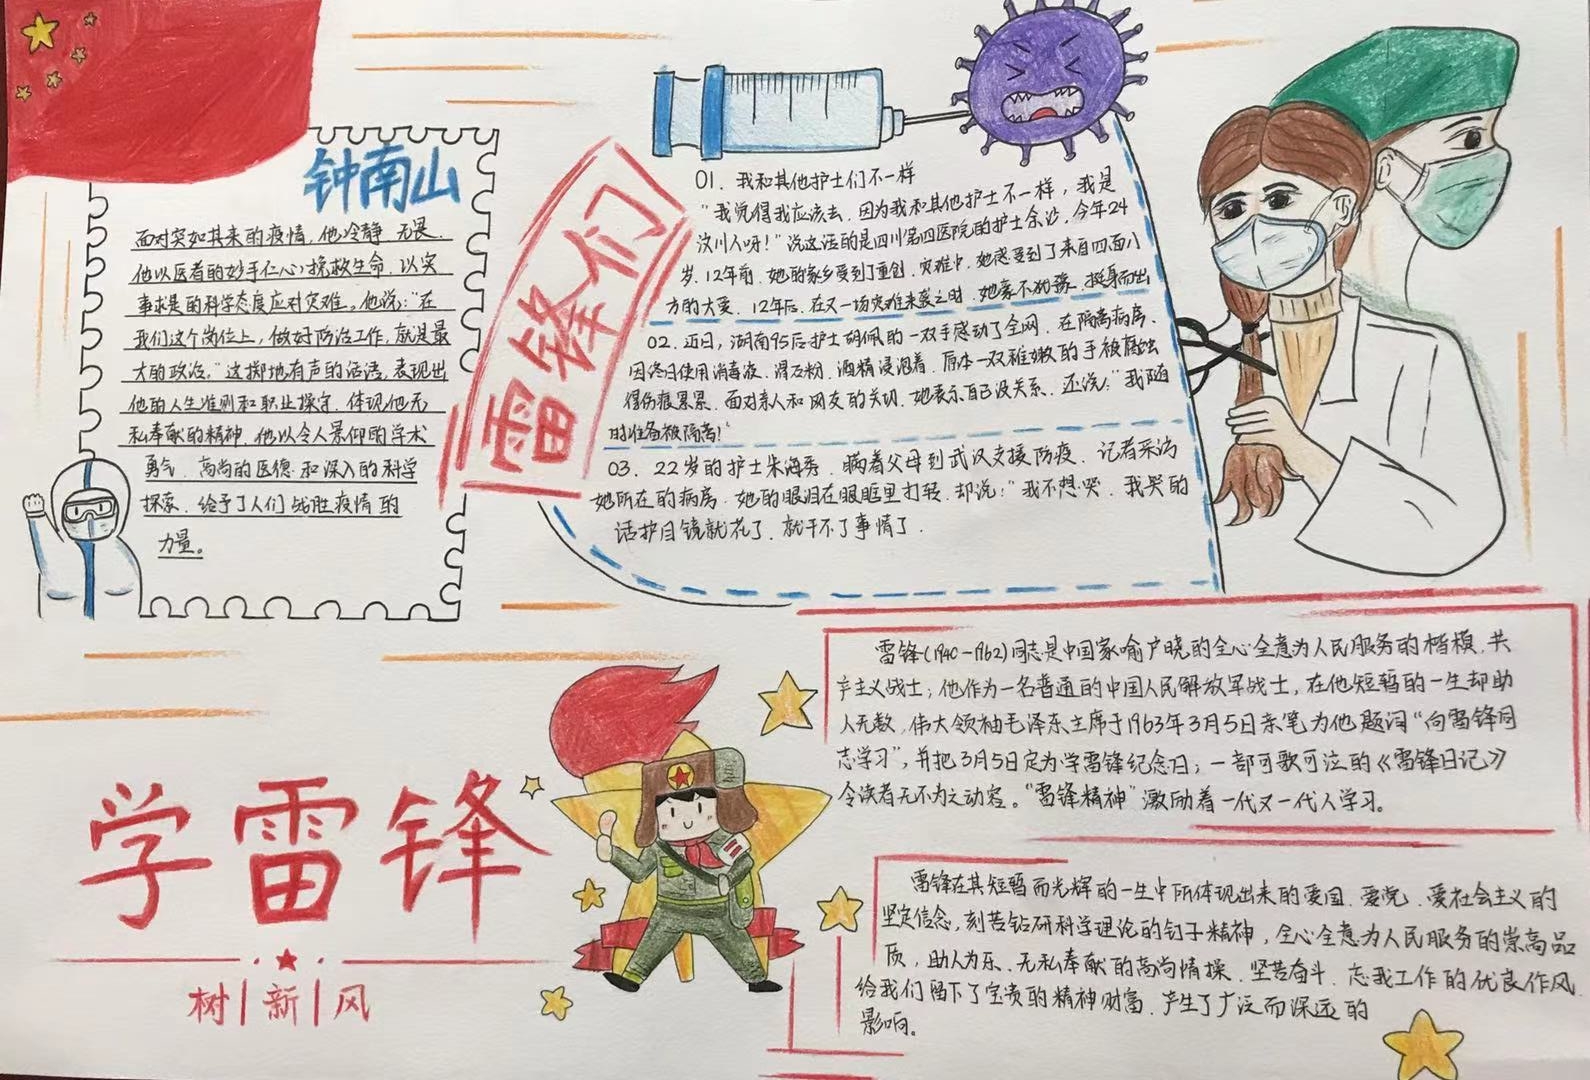 钟南山
面对突如其来的疫情,他冷静、无畏,
他以医者的妙手仁心,挽救生命,以实
事求是的科学态度应对灾难。他说:“在
我们这个岗位上,做好防治工作,就是最
大的政治。”这掷地有声的话语,表现出
他的人生准则和职业操守,体现他无
私奉献的精神,他以令人景仰的学术
勇气、高尚的医德和深入的科学
探索,给予了人们战胜疫情的
力量。
雷锋们
01.我和其他护士们不一样
“我觉得我应该去,因为我和其他护士不一样,我是
汶川人呀!”说这话的是四川第四医院的护士佘沙,今年24
岁,12年前,她的家乡受到了重创,灾难中,她感受到了来自四面八
方的大爱,12年后,在又一场灾难来袭之时,她毫不犹豫,挺身而出
02.近日,湖南95后护士胡佩的一双手感动了全网,在隔离病房,
因终日使用消毒液、滑石粉、酒精浸泡着,原本一双稚嫩的手被腐蚀
得伤痕累累,面对亲人和网友的关切,她表示自己没关系,还说:“我随
时准备被隔离!”
03.22岁的护士朱海秀,瞒着父母到武汉支援防疫,记者采访
她所在的病房,她的眼泪在眼眶里打转,却说:“我不想哭,我哭的
话护目镜就花了,就干不了事情了.
雷锋(1940-1962)同志是中国家喻户晓的全心全意为人民服务的楷模,共
产主义战士;他作为一名普通的中国人民解放军战士,在他短暂的一生却助
人无数,伟大领袖毛泽东主席于1963年3月5日亲笔为他题词“向雷锋同
志学习”,并把3月5日定为学雷锋纪念日;一部可歌可泣的《雷锋日记》
令读者无不为之动容。“雷锋精神”激励着一代又一代人学习。
学雷锋
树|新|风
雷锋在其短暂而光辉的一生中所体现出来的爱国、爱党、爱社会主义的
坚定信念,刻苦钻研科学理论的钉子精神,全心全意为人民服务的崇高品
质,助人为乐、无私奉献的高尚情操,坚苦奋斗、忘我工作的优良作风,
给我们留下了宝贵的精神财富,产生了广泛而深远的
影响。